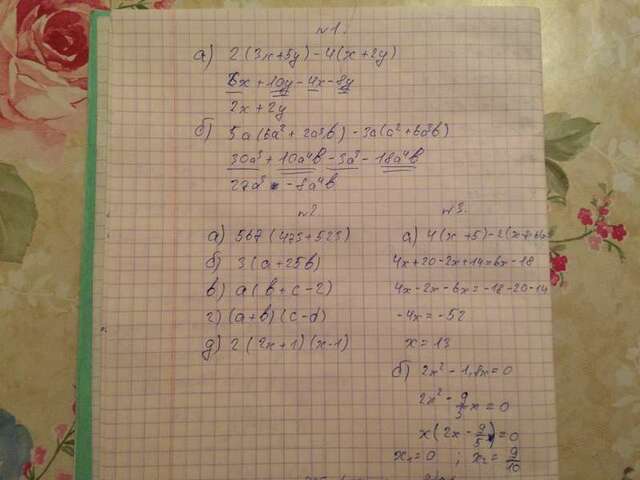 №1.
а) 2(3x+5y)-4(x+2y)
6x+10y-4x-8y
2x+2y
б) 5a(6a²+2a3b)-3a(c²+6a3b)
30a³+10a⁴b-3a³-18a⁴b
27a³-8a⁴b
№2
а) 567(475+525)
б) 3(a+25b)
в) a(b+c-2)
г) (a+b)(c-d)
д) 2(2x+1)(x-1)
№3
а) 4(x+5)-2(x
4x+20-2x+14=6x-18
4x-2x-6x=-18-20-14
-4x=-52
x=13
б) 2x²-1,8x=0
2x²-9/5x=0
x(2x-9/5)=0
x₁=0 ; x₂=9/10